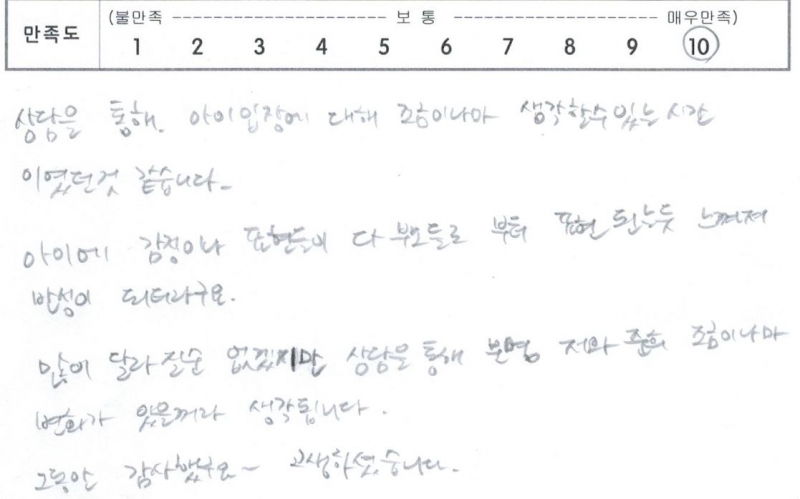 (불만족 ------------------------ 보 통 ------------------------ 매우만족)
만족도 1 2 3 4 5 6 7 8 9 10
상담을 통해. 아이입장에 대해 조금이나마 생각할수 있는 시간
이였던것 같습니다-
아이에 감정이나 표현들이 다 부모들로 부터 표현 된는듯 느껴져
반성이 되더라구요.
많이 달라 질순 없겠지만 상담을 통해 분명 저와 준희 조금이나마
변화가 있을꺼라 생각됩니다.
그동안 감사했구요~ 고생하셨습니다.